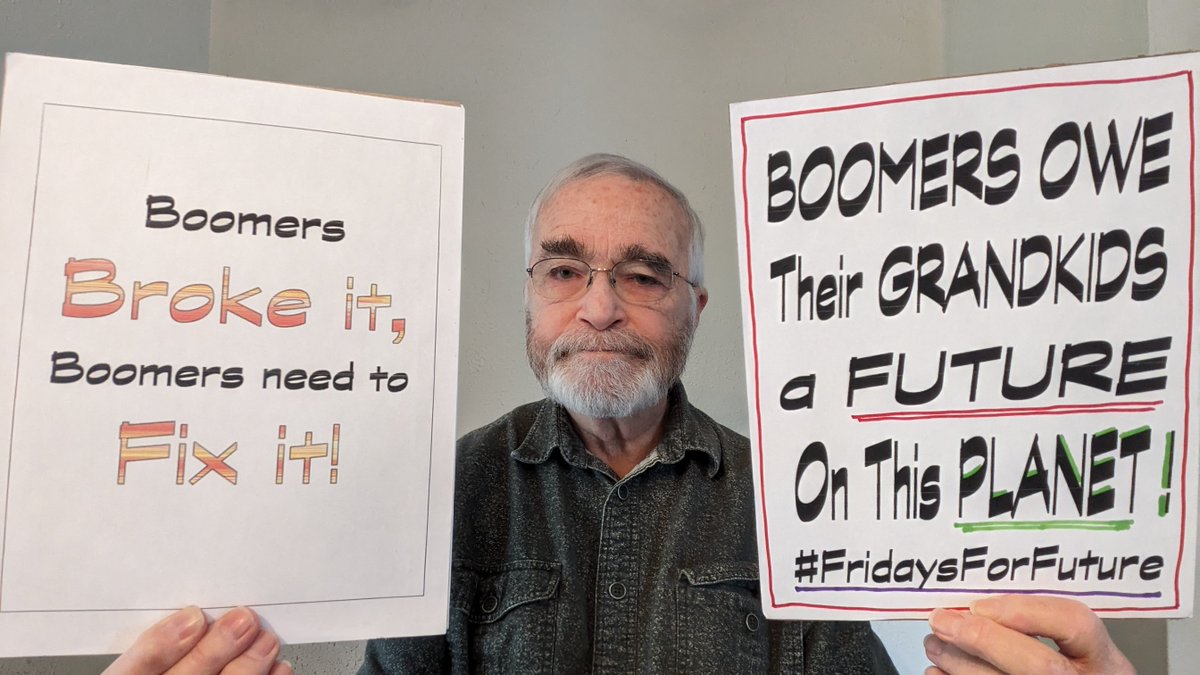 Boomers
Broke it,
Boomers need to
Fix it!
BOOMERS OWE
Their GRANDKIDS
a FUTURE
On This PLANET!
#FridaysForFuture